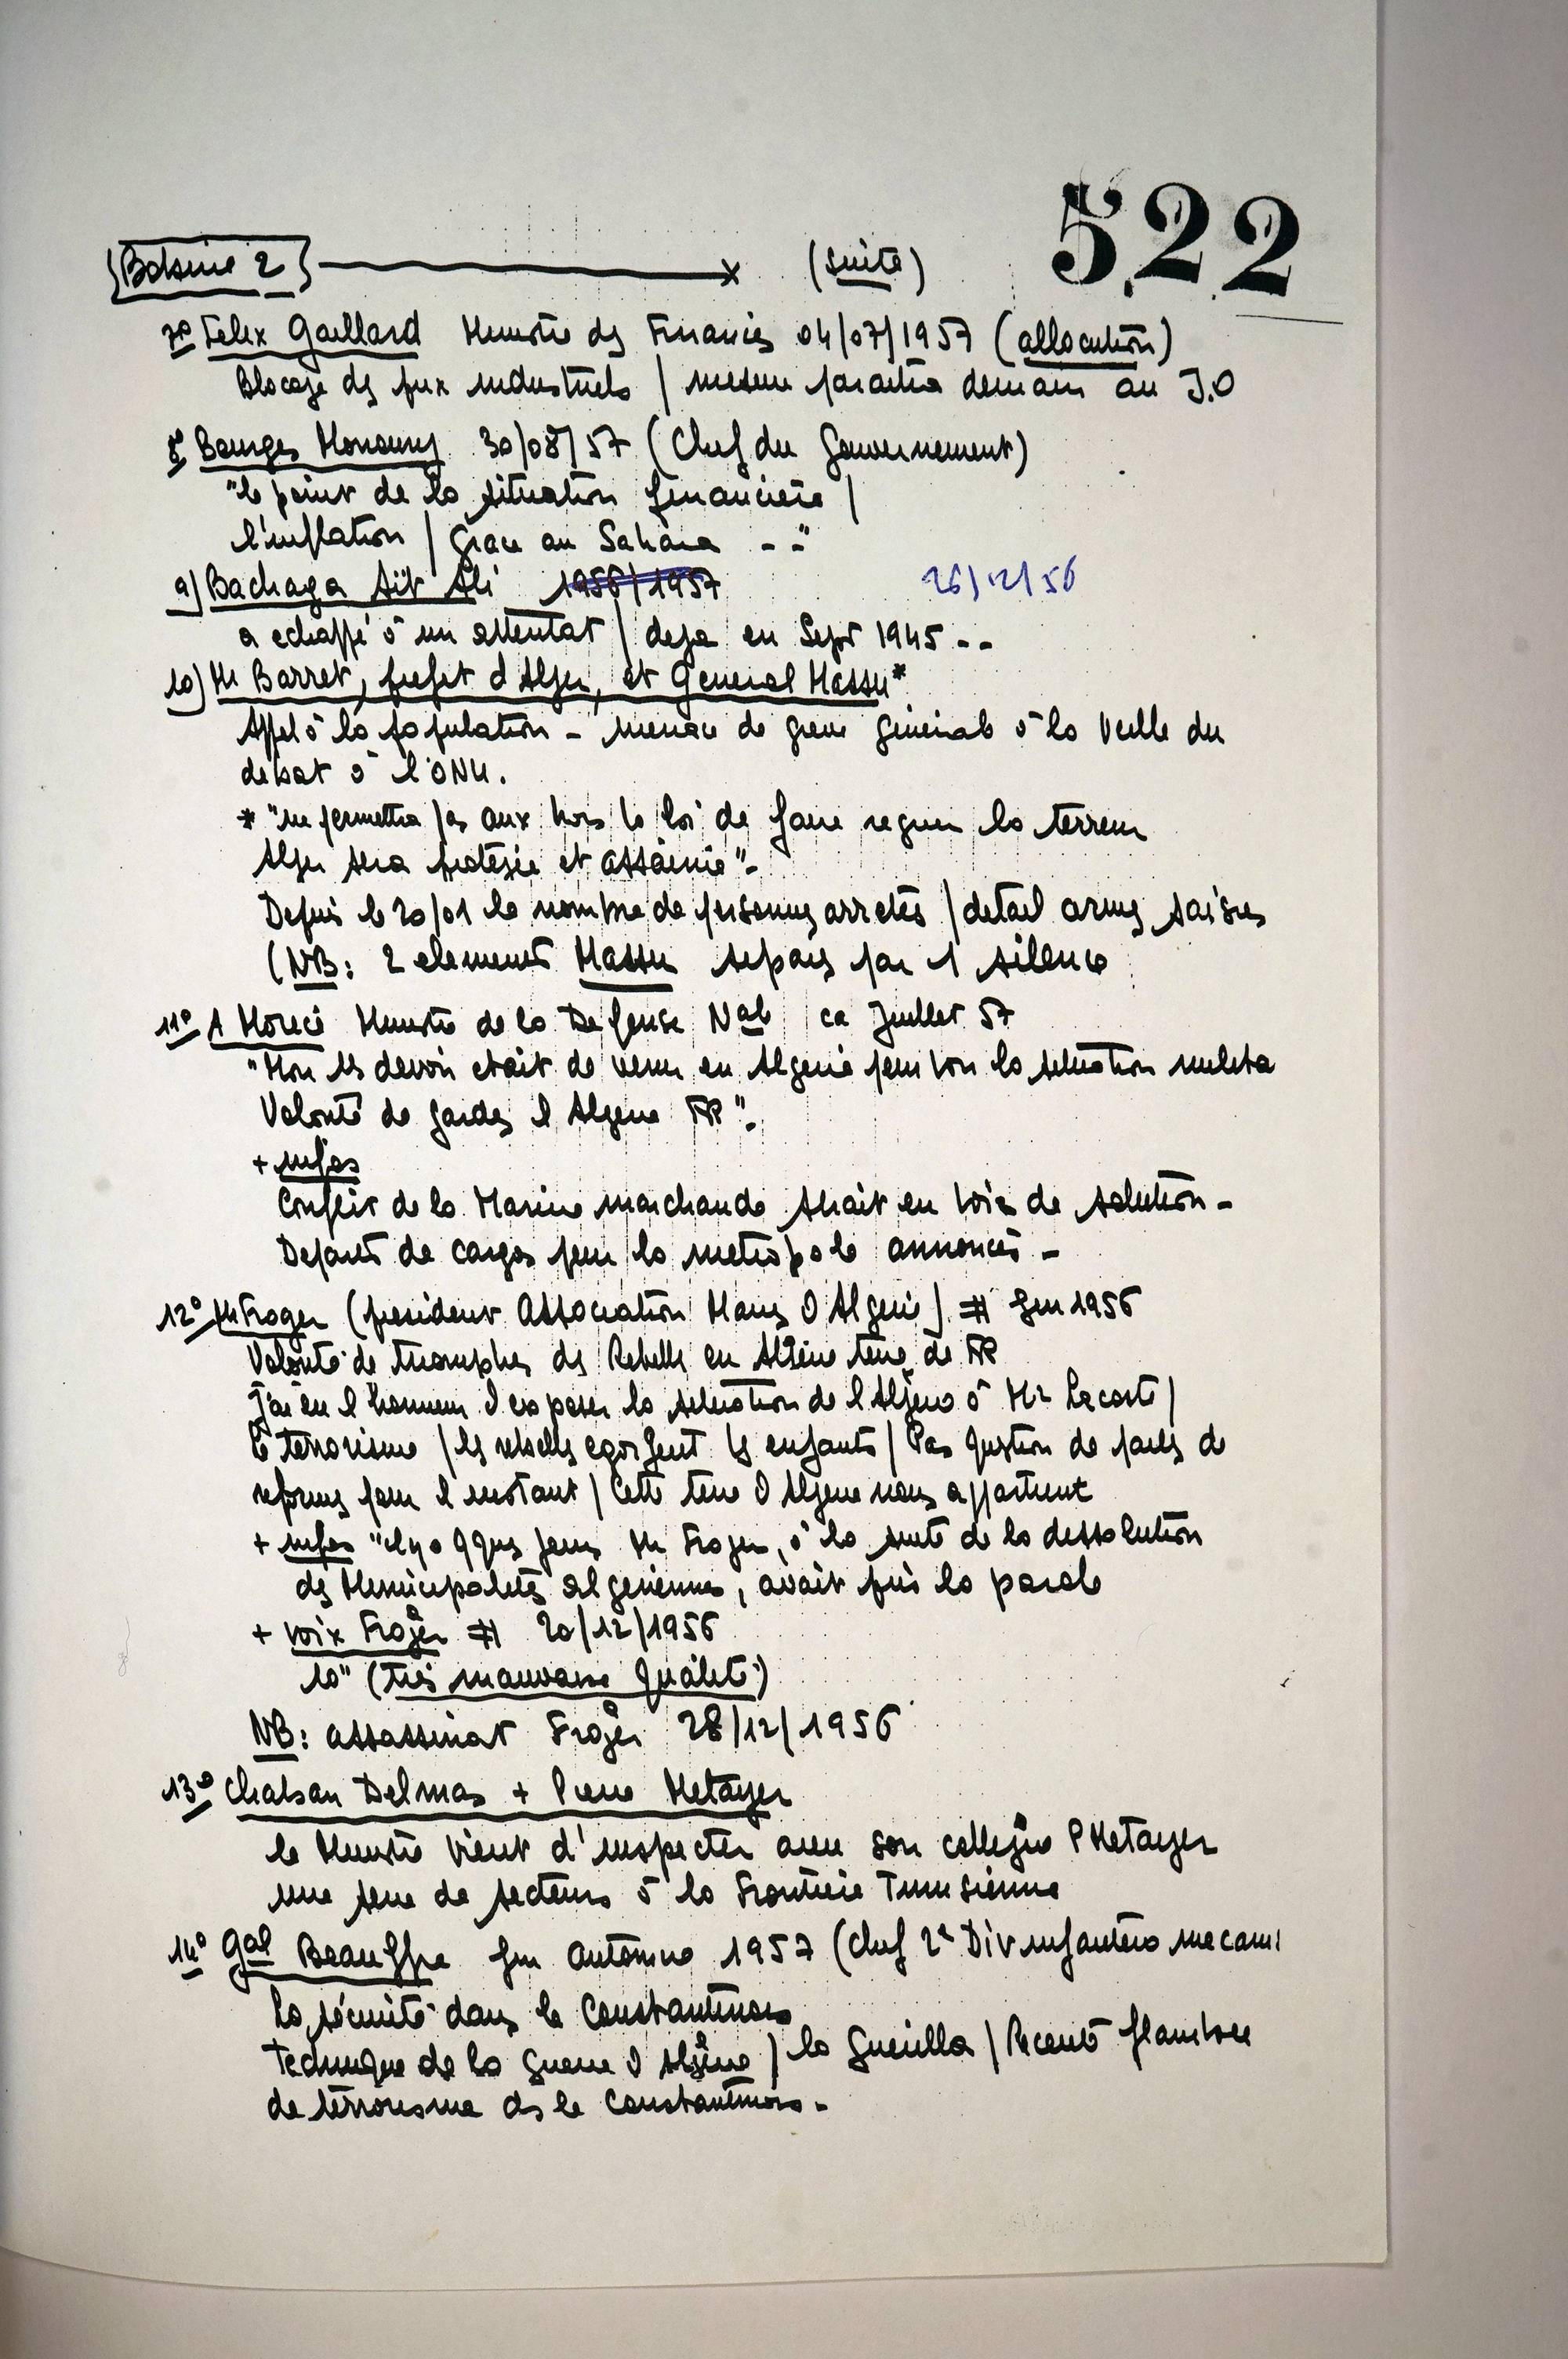 522
Bobine 2 (suite)
7° Felix Gaillard Ministre des Finances 04/07/1957 (allocution)
Blocage des prix industriels / mesure paraitra demain au J.O
8° Bourges Monoury 30/08/57 (Chef du Gouvernement)
"le point de la situation financiere /
l'inflation / Grace au Sahara - -"
9) Bachaga Aït Ali 1956/1957 26/12/56
a echappé à un attentat / deja en Sept 1945 - -
10) Mr Barret, prefet d'Alger, et General Massu*
Appel à la population - menace de greve générale à la veille du
debat à l'ONU.
* "ne permettra pas aux hors la loi de faire regner la terreur
Alger sera protégée et assainie"-
Depuis le 20/01 le nombre de personnes arretés / detail armes saisies
(NB: 2 elements Massu separés par 1 silence
11° A Morice Ministre de la Defense Nale ca Juillet 57
"Mon 1er devoir etait de venir en Algerie pour voir la situation milita
Volonté de garder l Algerie FR"-
+ infos
Conflit de la Marine marchande serait en voie de solution -
Departs de cargos pour la metropole annoncés -
12° Mr Froger (president Association Maires d Algerie) # Juin 1956
Volonté de triompher des Rebelles en Algérie terre de FR
J'ai eu l honneur d exposer la situation de l Algérie à Mr Lacoste /
le terrorisme / les rebelles egorgent les enfants / Pas question de parler de
reformes pour l instant / Cette terre d Algerie nous appartient
+ infos "il y a qques jours Mr Froger, à la suite de la dissolution
des Municipalités algeriennes, avait pris la parole
+ voix Froger # 20/12/1956
10" (très mauvaise qualité)
NB: assassinat Froger 28/12/1956
13° Chaban Delmas + Pierre Metayer
le Ministre vient d'inspecter avec son collegue P Metayer
une serie de secteurs à la Frontiere Tunisienne
14° Gal Beauffre Juin Automne 1957 (Chef 2e Div infanterie mecani
La sécurité dans le Constantinois
Technique de la guerre d Algérie / la Guerilla / Recente flambee
de terrorisme ds le Constantinois -